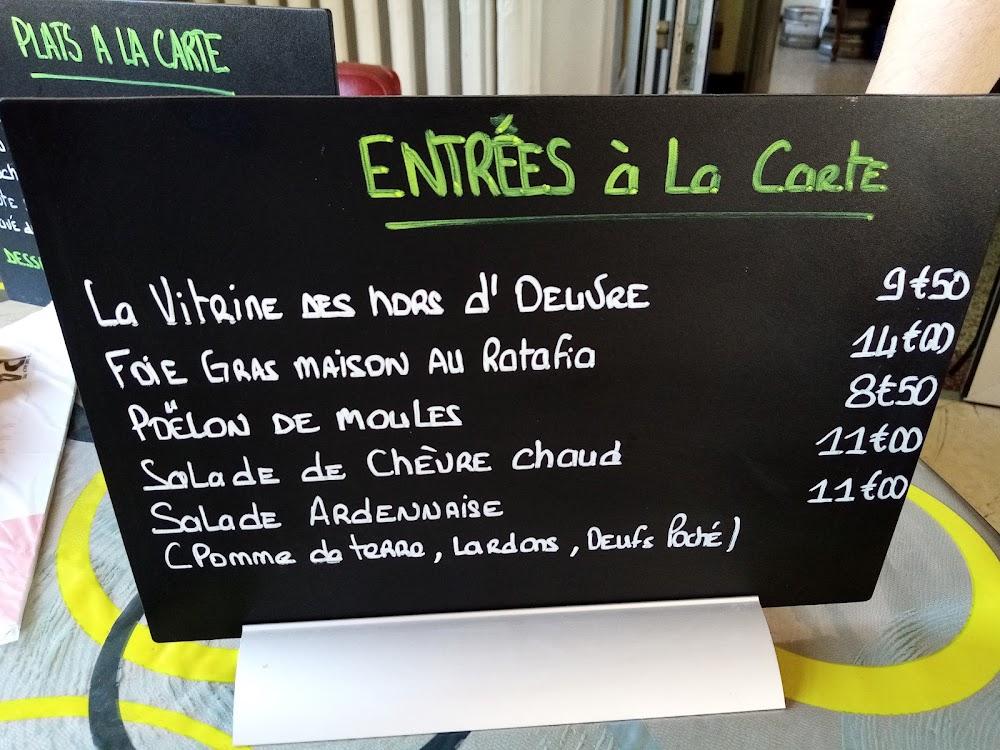 PLATS A LA CARTE
ENTRÉES à La Carte
La Vitrine des hors d'Oeuvre 9€50
Foie Gras maison au Ratafia 14€00
Poëlon de moules 8€50
Salade de Chèvre chaud 11€00
Salade Ardennaise 11€00
(Pomme de terre, Lardons, Oeufs Poché)